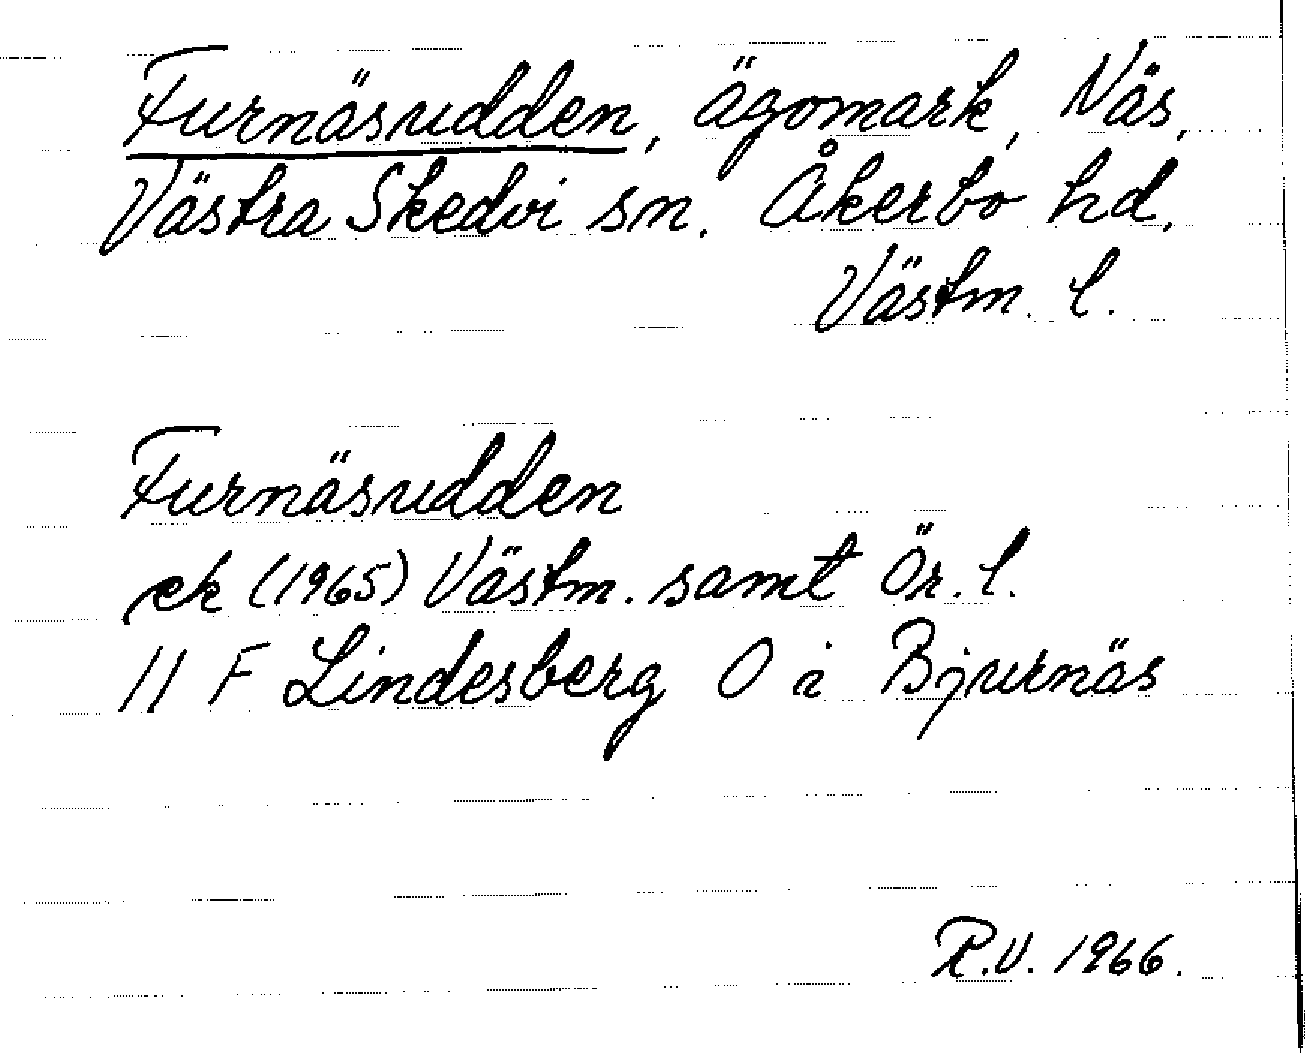 Furnäsudden, ägomark, Näs,
Västra Skedvi sn. Åkerbo hd.
Västm. l.
Furnäsudden
ek (1965) Västm. samt Ör. l.
11 F Lindesberg O i Bjurnäs
R.V. 1966.